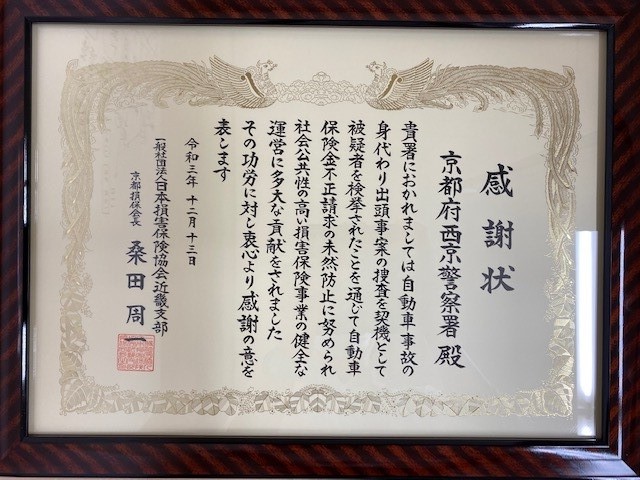 感謝状
京都府西京警察署 殿
貴署におかれましては自動車事故の
身代わり出頭事案の捜査を契機として
被疑者を検挙されたことを通じて自動車
保険金不正請求の未然防止に努められ
社会公共性の高い損害保険事業の健全な
運営に多大な貢献をされました
その功労に対し衷心より感謝の意を
表します
令和三年 十二月 十三日
一般社団法人日本損害保険協会近畿支部
京都損保会長 桑田周一